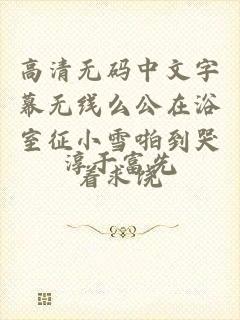 高清无码中文字
幕无线么公在浴
室征小雪啪到哭
着求饶
淳于富先